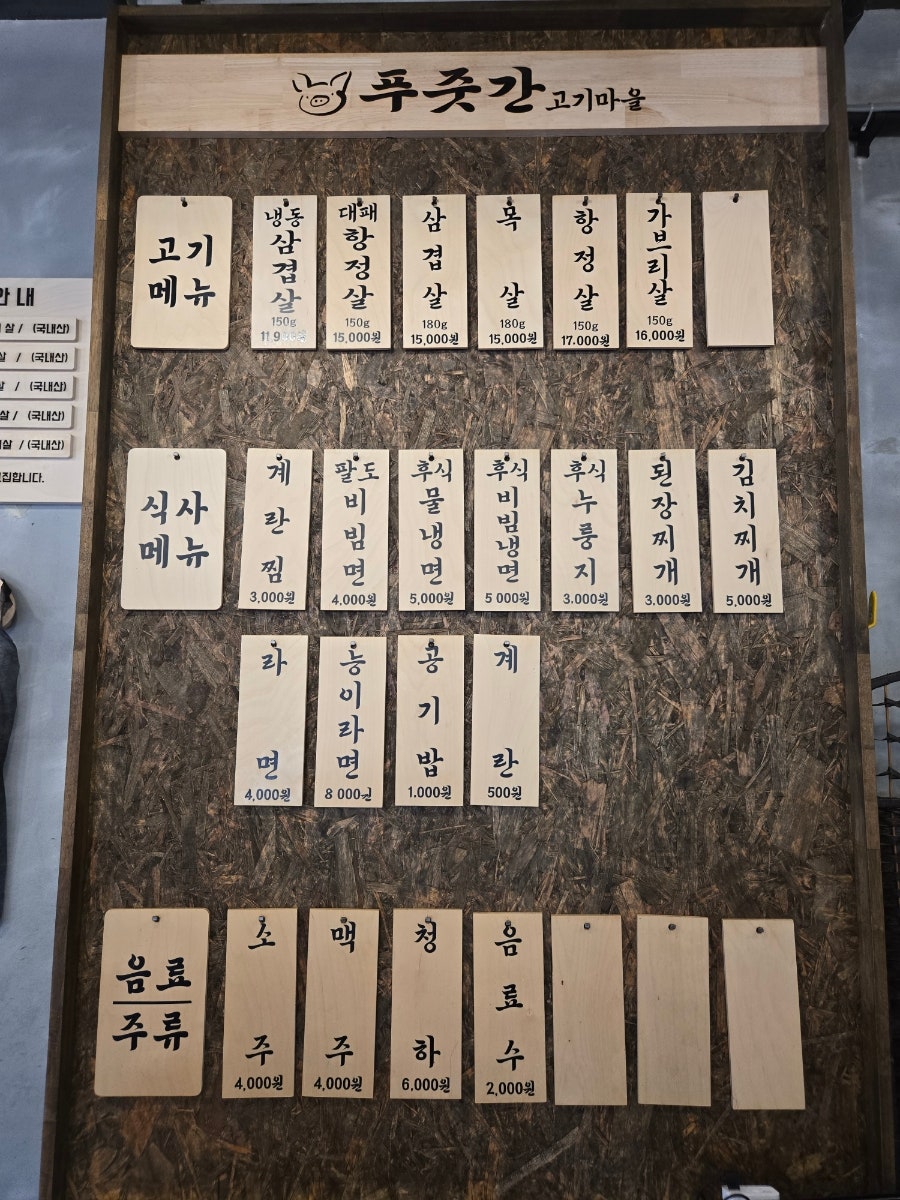 푸줏간 고기마을
고기
메뉴
냉동
삼겹살
150g
대패
항정살
150g
15,000원
삼겹살
180g
15,000원
목살
180g
15,000원
항정살
150g
17.000원
가브리살
150g
16,000원
안 내
살 / (국내산)
살 / (국내산)
살 / (국내산)
살 / (국내산)
살 / (국내산)
식사
메뉴
계란찜
3,000원
팔도
비빔면
4,000원
후식
물냉면
5,000원
후식
비빔냉면
5 000원
후식
누룽지
3.000원
된장찌개
3,000원
김치찌개
5,000원
라면
4,000원
능이라면
8 000원
공기밥
1.000원
계란
500원
음료
주류
소주
4,000원
맥주
4,000원
청하
6,000원
음료수
2,000원